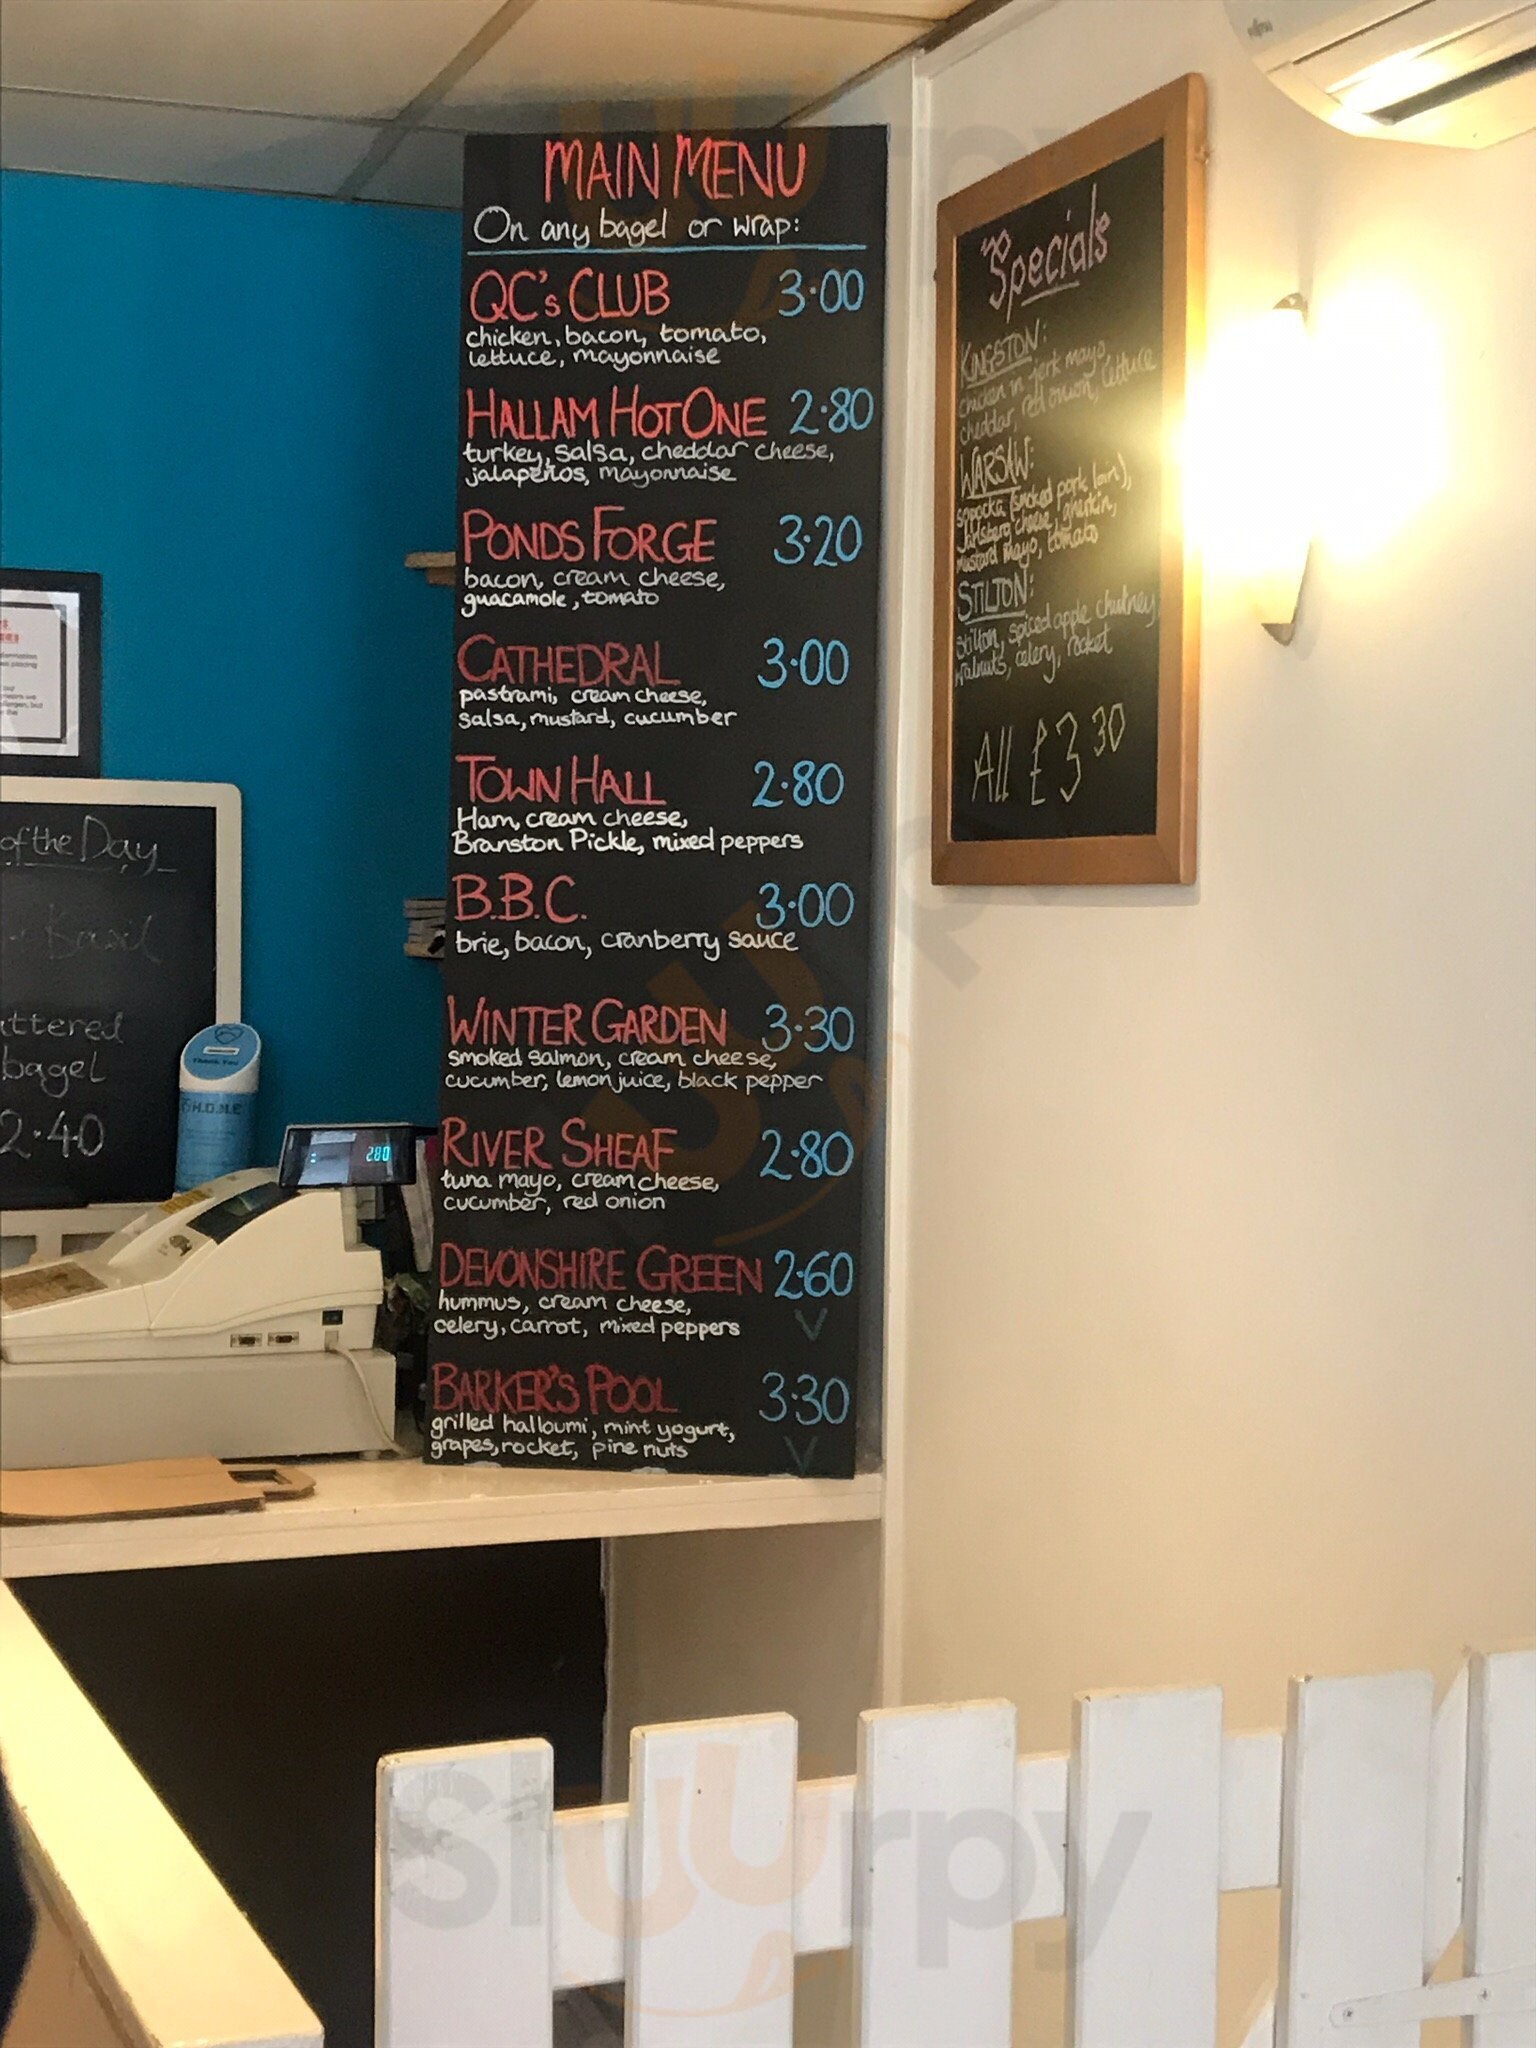 MAIN MENU
On any bagel or wrap:
QC's CLUB 3·00
chicken, bacon, tomato,
lettuce, mayonnaise
HALLAM HOT ONE 2·80
turkey, salsa, cheddar cheese,
jalapeños, mayonnaise
PONDS FORGE 3·20
bacon, cream cheese,
guacamole, tomato
CATHEDRAL 3·00
pastrami, cream cheese,
salsa, mustard, cucumber
TOWN HALL 2·80
Ham, cream cheese,
Branston Pickle, mixed peppers
B.B.C. 3·00
brie, bacon, cranberry sauce
WINTER GARDEN 3·30
smoked salmon, cream cheese,
cucumber, lemon juice, black pepper
RIVER SHEAF 2·80
tuna mayo, cream cheese,
cucumber, red onion
DEVONSHIRE GREEN 2·60
hummus, cream cheese,
celery, carrot, mixed peppers V
BARKER'S POOL 3·30
grilled halloumi, mint yogurt,
grapes, rocket, pine nuts V
Specials
KINGSTON:
chicken in jerk mayo,
cheddar, red onion, lettuce
WARSAW:
sopocka (smoked pork loin),
Jarlsberg cheese, gherkin,
mustard mayo, tomato
STILTON:
Stilton, spiced apple chutney
walnuts, celery, rocket
All £3 30
of the Day
Basil
ttered
bagel
2·40
Thank You
H.O.M.E
2.80
Sluurpy